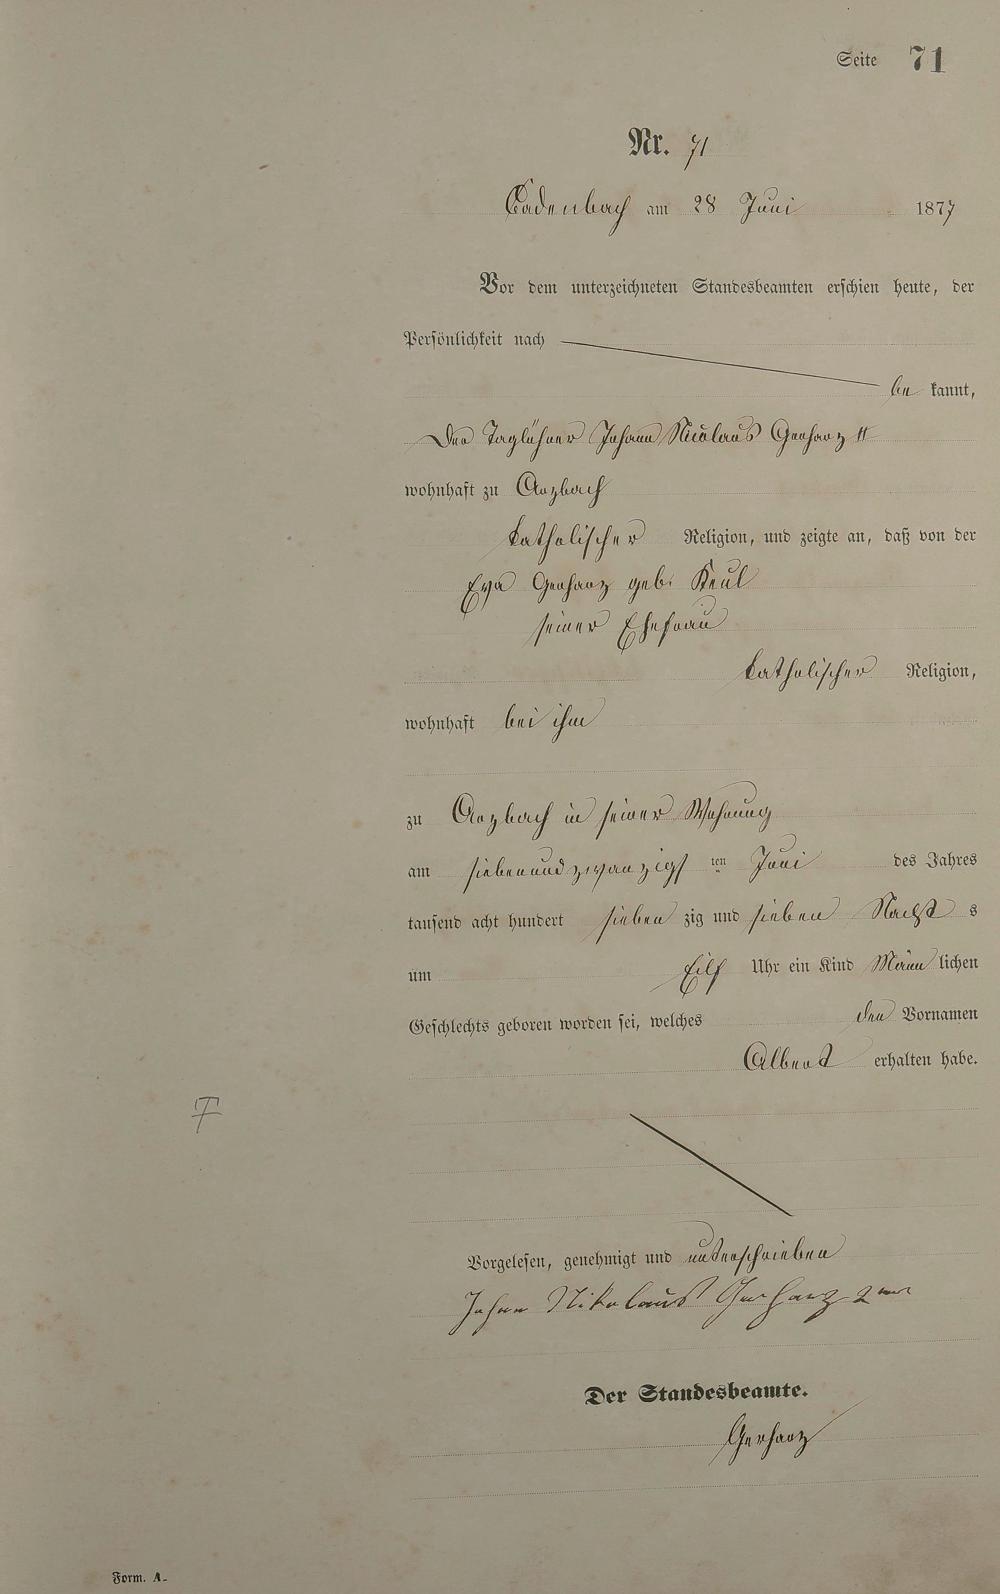 Seite 71
Nr. 71
Cadenbach am 28 Juni 1877
Vor dem unterzeichneten Standesbeamten erschien heute, der
Persönlichkeit nach
be kannt,
Der Taglöhner Johann Nicolaus Gerharz II
wohnhaft zu Arzbach
katholischer Religion, und zeigte an, daß von der
Eva Gerharz geb. Keul
seiner Ehefrau
katholischer Religion,
wohnhaft bei ihm
zu Arzbach in seiner Wohnung
am siebenundzwanzigs ten Juni des Jahres
tausend acht hundert sieben zig und sieben Nacht s
um Eilf Uhr ein Kind Männ lichen
Geschlechts geboren worden sei, welches den Vornamen
Albert erhalten habe.
F
Vorgelesen, genehmigt und unterschrieben
Johan Nikolaus Gerharz 2
Der Standesbeamte.
Gerharz
Form. A.